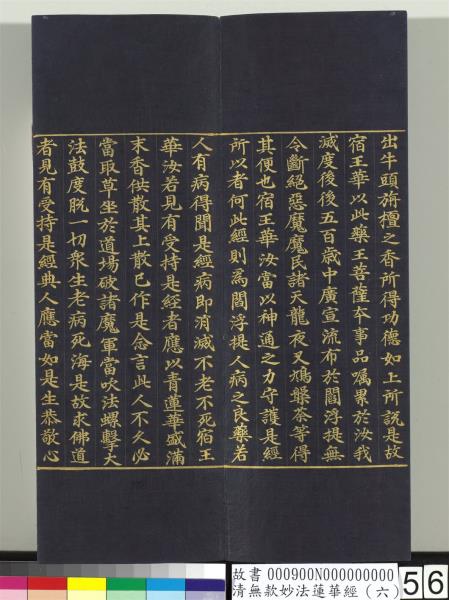 出牛頭旃檀之香所得功德如上所說是故
宿王華以此藥王菩薩本事品囑累於汝我
滅度後後五百歲中廣宣流布於閻浮提無
令斷絕惡魔魔民諸天龍夜叉鳩槃荼等得
其便也宿王華汝當以神通之力守護是經
所以者何此經則為閻浮提人病之良藥若
人有病得聞是經病即消滅不老不死宿王
華汝若見有受持是經者應以青蓮華盛滿
末香供散其上散已作是念言此人不久必
當取草坐於道場破諸魔軍當吹法螺擊大
法鼓度脫一切眾生老病死海是故求佛道
者見有受持是經典人應當如是生恭敬心
故書 000900N000000000
清無款妙法蓮華經(六)
56